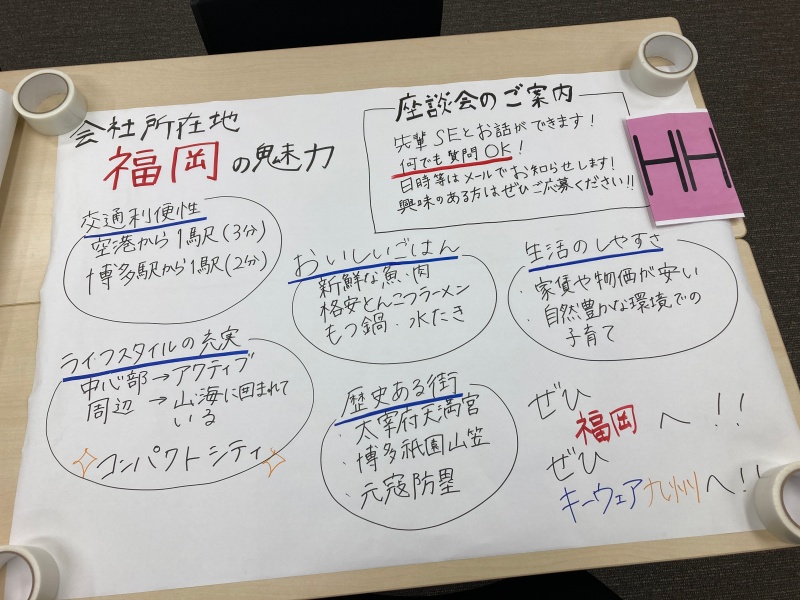 会社所在地
福岡の魅力
座談会のご案内
先輩SEとお話ができます!
何でも質問OK!
日時等はメールでお知らせします!
興味のある方はぜひご応募ください!!
HH
交通利便性
空港から1駅(3分)
博多駅から1駅(2分)
おいしいごはん
新鮮な魚、肉
格安とんこつラーメン
もつ鍋・水たき
生活のしやすさ
・家賃や物価が安い
・自然豊かな環境での
子育て
ライフスタイルの充実
中心部→アクティブ
周辺→山、海に囲まれて
いる
コンパクトシティ
歴史ある街
・太宰府天満宮
・博多祇園山笠
・元寇防塁
ぜひ
福岡へ!!
ぜひ
キーウェア九州へ!!